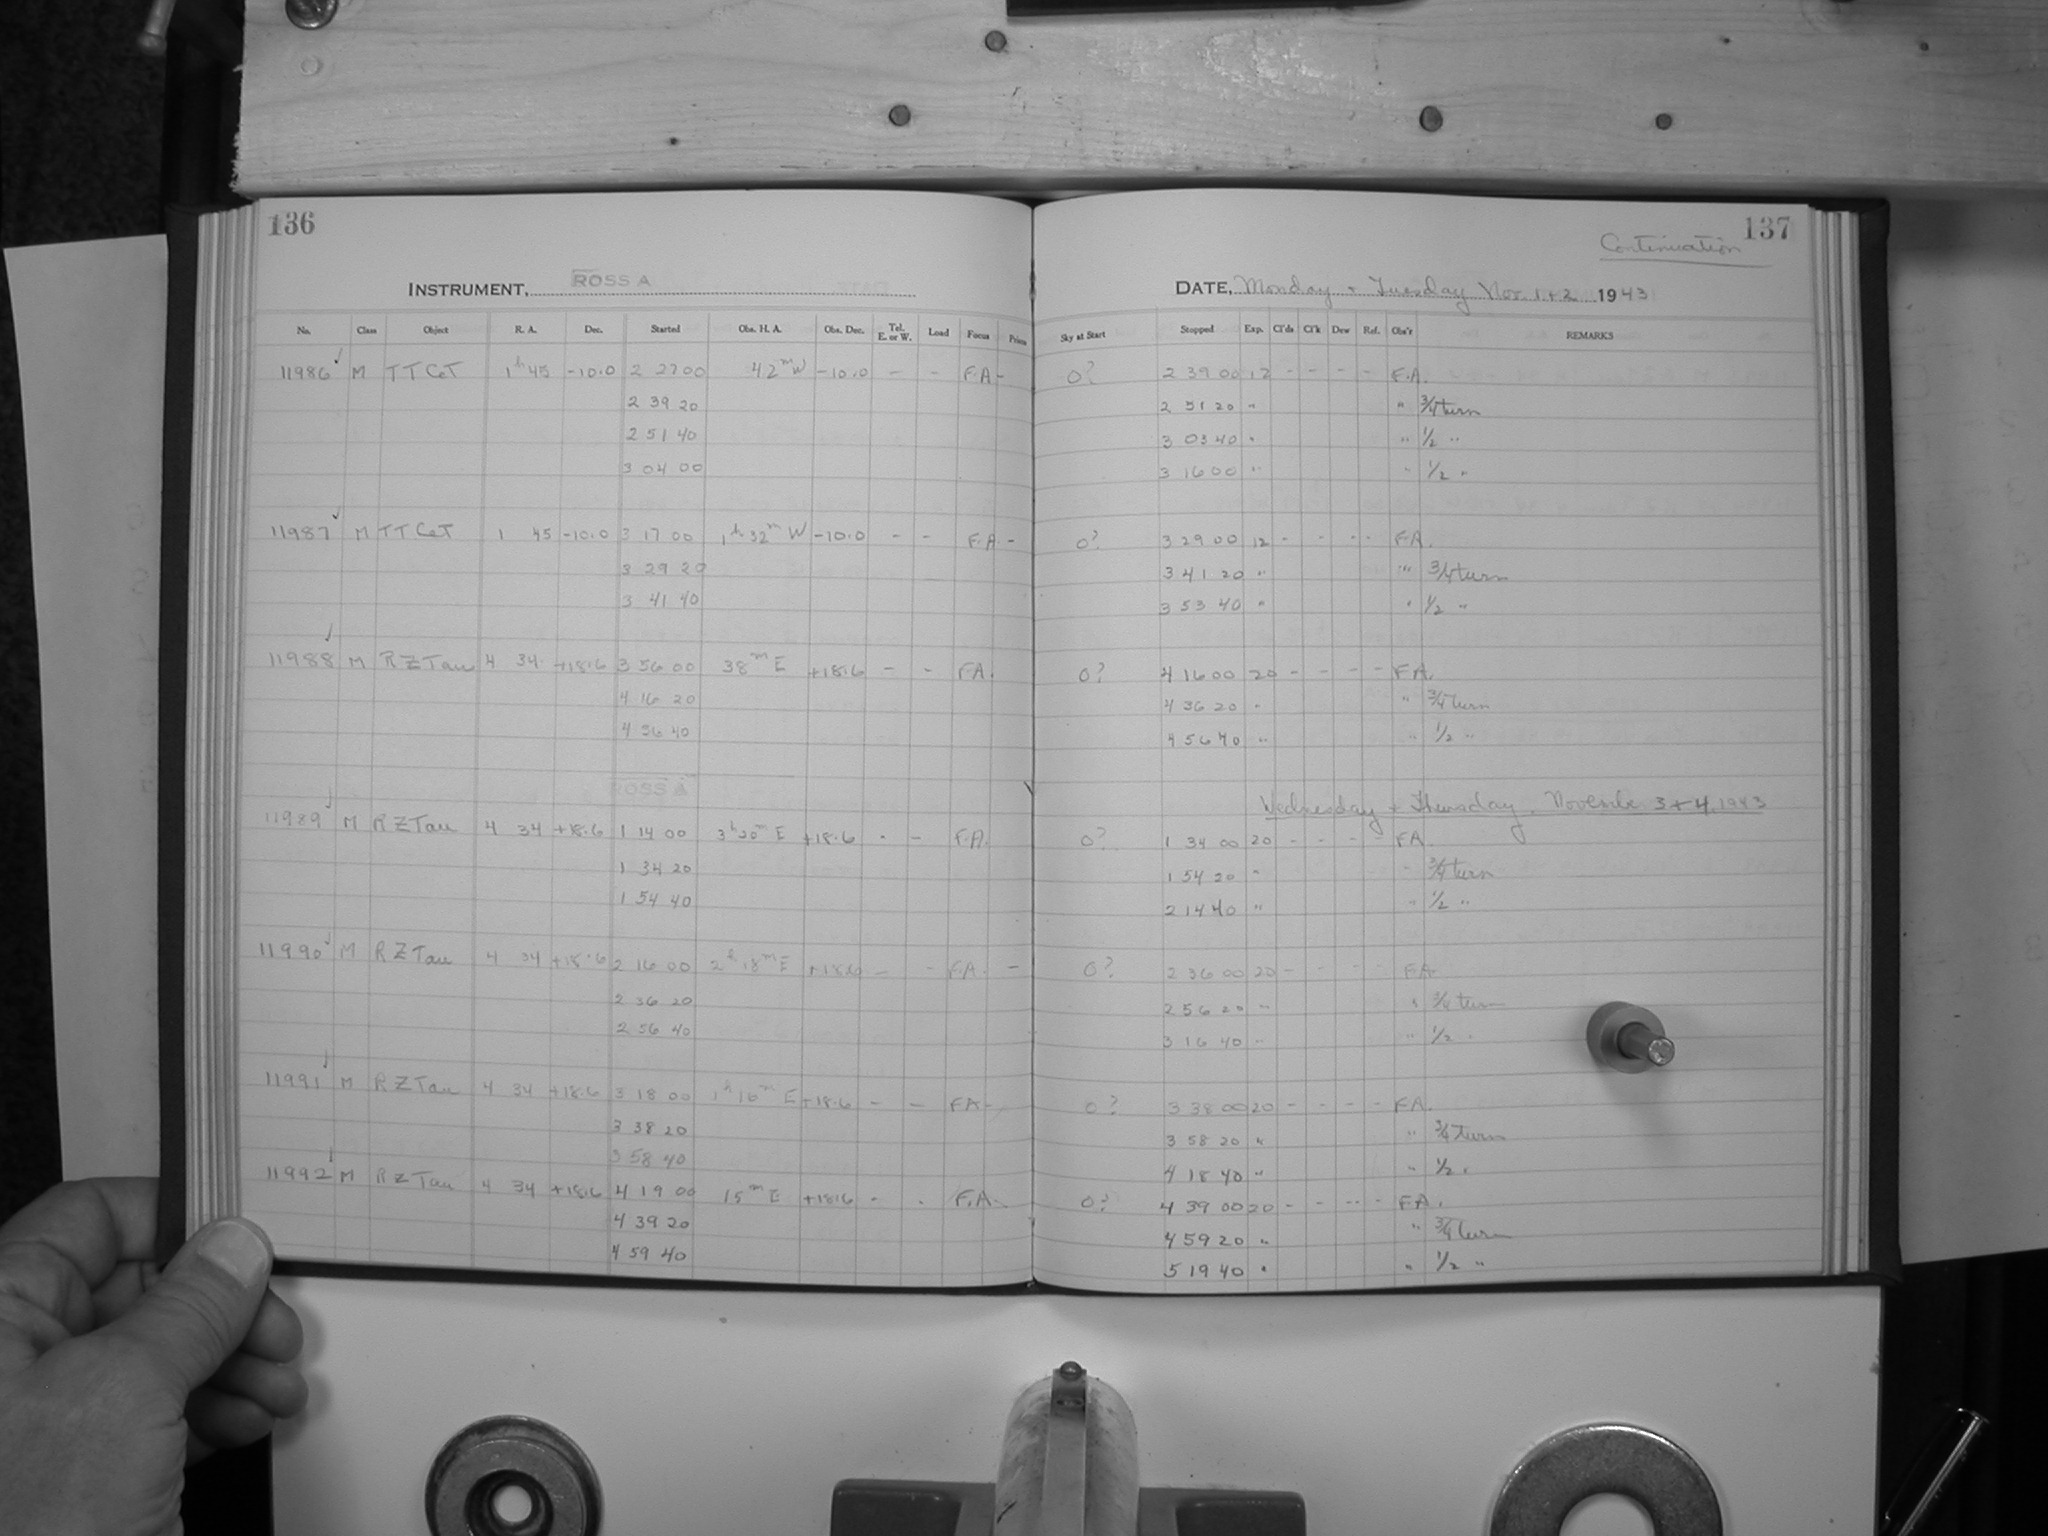 136
137
Continuation
INSTRUMENT, ROSS A
DATE, Monday + Tuesday Nov. 1+2 1943
No. Class Object R. A. Dec. Started Obs. H. A. Obs. Dec. Tel. E. or W. Load Focus Prism Sky at Start Stopped Exp. Cl'ds Cl'k Dew Ref. Obs'r REMARKS
11986 ✓ M TT CeT 1h 45 -10.0 2 27 00 42m W -10.0 - - F.A - 0? 2 39 00 12 - - - - F.A.
2 39 20 2 51 20 " " 3/4 turn
2 51 40 3 03 40 " " 1/2 "
3 04 00 3 16 00 " " 1/2 "
11987 ✓ M TT CeT 1 45 -10.0 3 17 00 1h 32m W -10.0 - - F.A - 0? 3 29 00 12 - - - - F.A.
3 29 20 3 41 20 " " 3/4 turn
3 41 40 3 53 40 " " 1/2 "
11988 ✓ M RZ Tau 4 34 +18.6 3 56 00 38m E +18.6 - - F.A. 0? 4 16 00 20 - - - - F.A.
4 16 20 4 36 20 " " 3/4 turn
4 36 40 4 56 40 " " 1/2 "
ROSS A
Wednesday + Thursday, November 3+4, 1943
11989 ✓ M RZ Tau 4 34 +18.6 1 14 00 3h 20m E +18.6 - - F.A. 0? 1 34 00 20 - - - - FA
1 34 20 1 54 20 " " 3/4 turn
1 54 40 2 14 40 " " 1/2 "
11990 ✓ M RZ Tau 4 34 +18.6 2 16 00 2h 18m E +18.6 - - F.A. - 0? 2 36 00 20 - - - - FA
2 36 20 2 56 20 " " 3/4 turn
2 56 40 3 16 40 " " 1/2 "
11991 ✓ M RZ Tau 4 34 +18.6 3 18 00 1h 16m E +18.6 - - FA - 0? 3 38 00 20 - - - - FA.
3 38 20 3 58 20 " " 3/4 turn
3 58 40 4 18 40 " " 1/2 "
11992 ✓ M RZ Tau 4 34 +18.6 4 19 00 15m E +18.6 - - F.A. 0? 4 39 00 20 - - - - FA.
4 39 20 4 59 20 " " 3/4 turn
4 59 40 5 19 40 " " 1/2 "